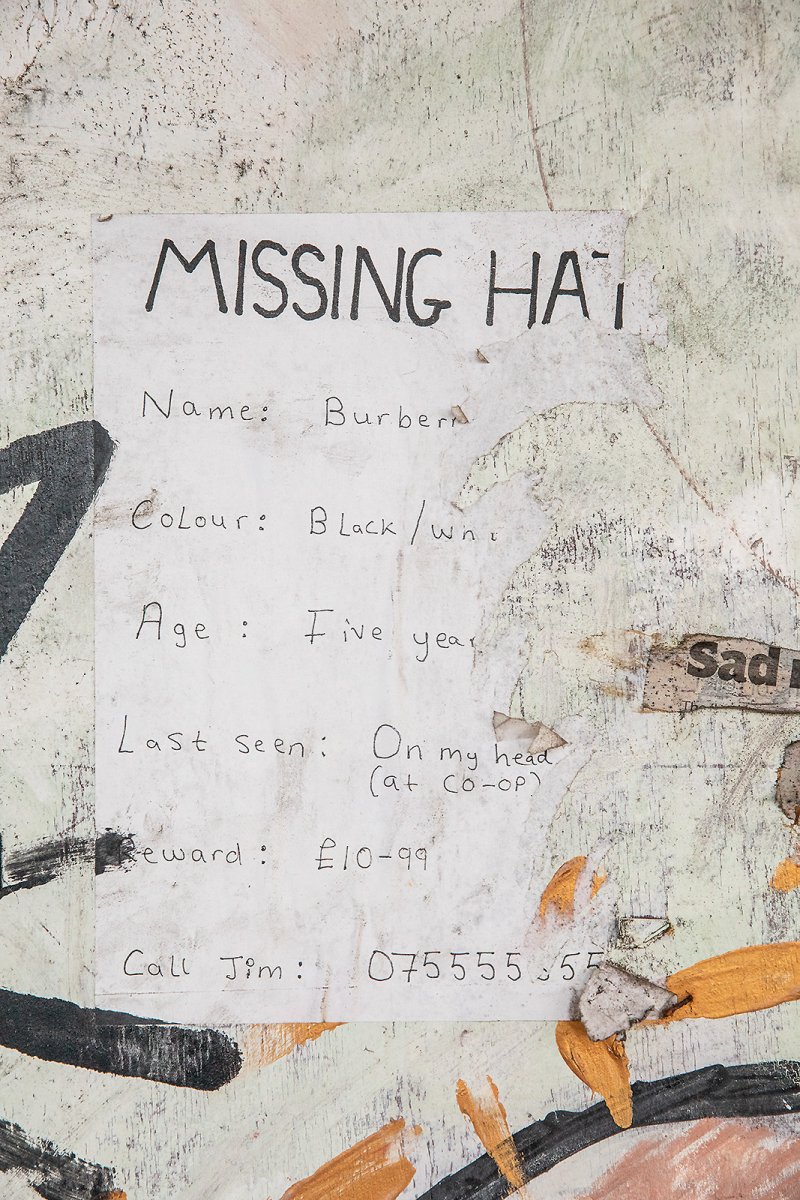 MISSING HAT
Name: Burberr
Colour: Black/whi
Age: Five year
Last seen: On my head
(at CO-OP)
Reward: £10-99
Call Jim:
Sad